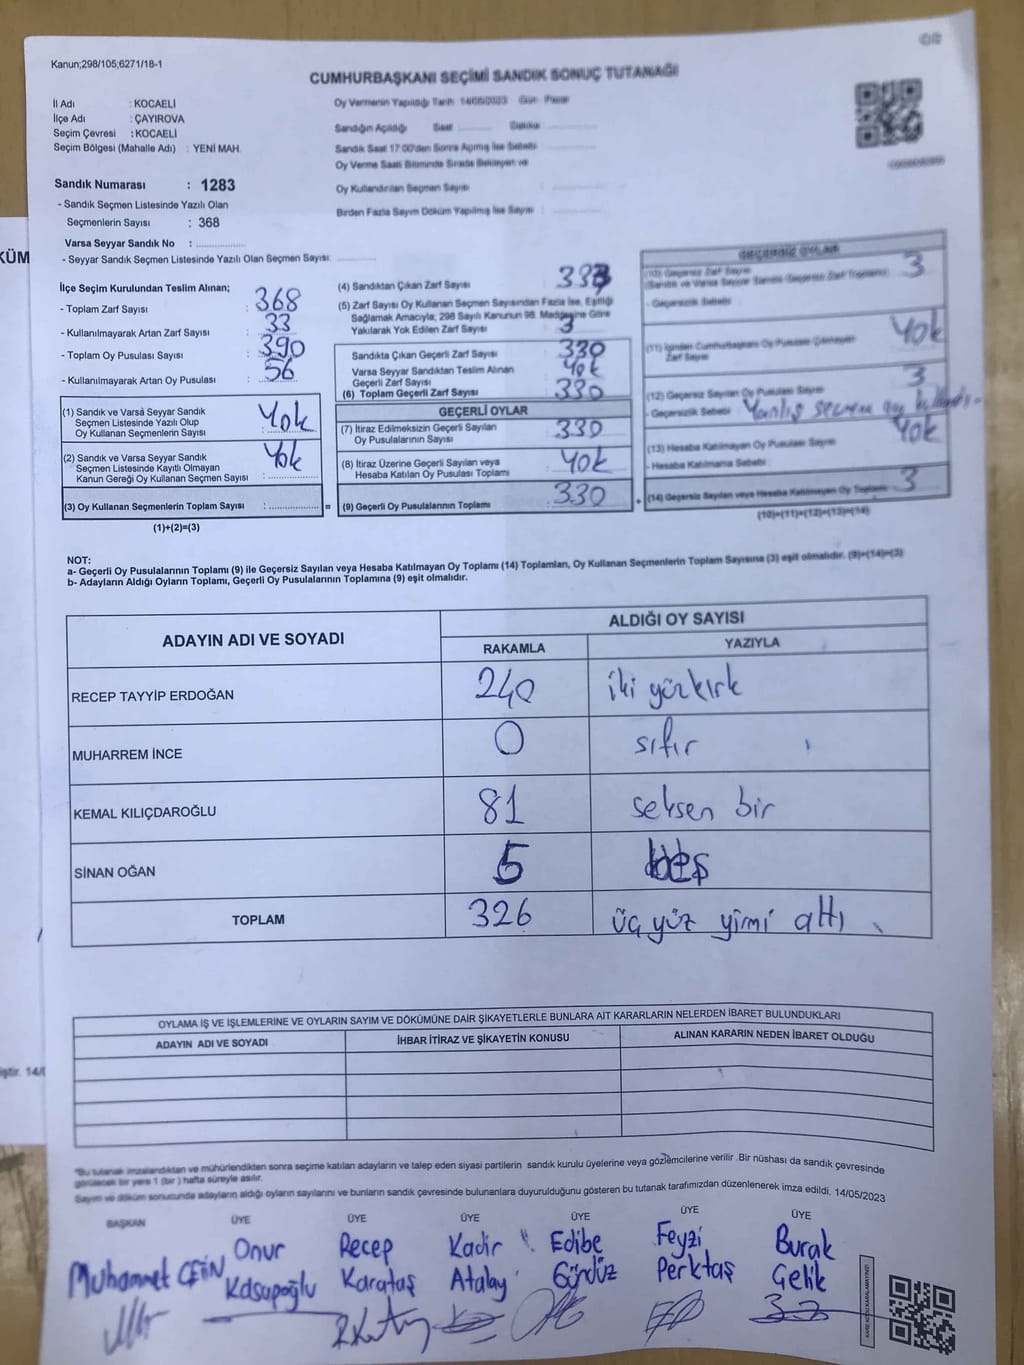 Kanun;298/105;6271/18-1
CUMHURBAŞKANI SEÇİMİ SANDIK SONUÇ TUTANAĞI
İl Adı : KOCAELİ
İlçe Adı : ÇAYIROVA
Seçim Çevresi : KOCAELİ
Seçim Bölgesi (Mahalle Adı) : YENİ MAH.
Sandık Numarası : 1283
- Sandık Seçmen Listesinde Yazılı Olan
Seçmenlerin Sayısı : 368
Varsa Seyyar Sandık No :
- Seyyar Sandık Seçmen Listesinde Yazılı Olan Seçmen Sayısı:
Oy Vermenin Yapıldığı Tarih: 14/05/2023 Gün: Pazar
Sandığın Açıldığı Saat Dakika
Sandık Saat 17:00'den Sonra Açmış İse Sebebi
Oy Verme Saati Bitiminde Sırada Bekleyen ve
Oy Kullandırılan Seçmen Sayısı :
Birden Fazla Sayım Döküm Yapılmış İse Sayısı :
İlçe Seçim Kurulundan Teslim Alınan;
- Toplam Zarf Sayısı : 368
- Kullanılmayarak Artan Zarf Sayısı : 33
- Toplam Oy Pusulası Sayısı : 390
- Kullanılmayarak Artan Oy Pusulası : 56
(1) Sandık ve Varsa Seyyar Sandık
Seçmen Listesinde Yazılı Olup
Oy Kullanan Seçmenlerin Sayısı : Yok
(2) Sandık ve Varsa Seyyar Sandık
Seçmen Listesinde Kayıtlı Olmayan
Kanun Gereği Oy Kullanan Seçmen Sayısı : Yok
(3) Oy Kullanan Seçmenlerin Toplam Sayısı : =
(1)+(2)=(3)
(4) Sandıktan Çıkan Zarf Sayısı 333
(5) Zarf Sayısı Oy Kullanan Seçmen Sayısından Fazla İse, Eşitliği
Sağlamak Amacıyla; 298 Sayılı Kanunun 98. Maddesine Göre
Yakılarak Yok Edilen Zarf Sayısı 3
Sandıkta Çıkan Geçerli Zarf Sayısı 330
Varsa Seyyar Sandıktan Teslim Alınan
Geçerli Zarf Sayısı Yok
(6) Toplam Geçerli Zarf Sayısı 330
GEÇERLİ OYLAR
(7) İtiraz Edilmeksizin Geçerli Sayılan
Oy Pusulalarının Sayısı 330
(8) İtiraz Üzerine Geçerli Sayılan veya
Hesaba Katılan Oy Pusulası Toplamı YOK
(9) Geçerli Oy Pusulalarının Toplamı 330 +
GEÇERSİZ OYLAR
(10) Geçersiz Zarf Sayısı 3
(Sandık ve Varsa Seyyar Sandık Geçersiz Zarf Toplamı)
- Geçersizlik Sebebi :
(11) İçinden Cumhurbaşkanı Oy Pusulası Çıkmayan
Zarf Sayısı Yok
(12) Geçersiz Sayılan Oy Pusulası Sayısı 3
- Geçersizlik Sebebi : Yanlış seçmen oy
(13) Hesaba Katılmayan Oy Pusulası Sayısı Yok
- Hesaba Katılmama Sebebi :
(14) Geçersiz Sayılan veya Hesaba Katılmayan Oy Toplamı 3
(10)+(11)+(12)+(13)=(14)
NOT:
a- Geçerli Oy Pusulalarının Toplamı (9) ile Geçersiz Sayılan veya Hesaba Katılmayan Oy Toplamı (14) Toplamları, Oy Kullanan Seçmenlerin Toplam Sayısına (3) eşit olmalıdır. (9)+(14)=(3)
b- Adayların Aldığı Oyların Toplamı, Geçerli Oy Pusulalarının Toplamına (9) eşit olmalıdır.
ADAYIN ADI VE SOYADI ALDIĞI OY SAYISI
RAKAMLA YAZIYLA
RECEP TAYYİP ERDOĞAN 240 iki yüzkırk
MUHARREM İNCE 0 sıfır
KEMAL KILIÇDAROĞLU 81 seksen bir
SİNAN OĞAN 5 beş
TOPLAM 326 üç yüz yirmi altı
OYLAMA İŞ VE İŞLEMLERİNE VE OYLARIN SAYIM VE DÖKÜMÜNE DAİR ŞİKAYETLERLE BUNLARA AİT KARARLARIN NELERDEN İBARET BULUNDUKLARI
ADAYIN ADI VE SOYADI İHBAR İTİRAZ VE ŞİKAYETİN KONUSU ALINAN KARARIN NEDEN İBARET OLDUĞU
*Bu tutanak imzalandıktan ve mühürlendikten sonra seçime katılan adayların ve talep eden siyasi partilerin sandık kurulu üyelerine veya gözlemcilerine verilir .Bir nüshası da sandık çevresinde
görülecek bir yere 1 (bir ) hafta süreyle asılır.
Sayım ve döküm sonucunda adayların aldığı oyların sayılarını ve bunların sandık çevresinde bulunanlara duyurulduğunu gösteren bu tutanak tarafımızdan düzenlenerek imza edildi. 14/05/2023
BAŞKAN ÜYE ÜYE ÜYE ÜYE ÜYE ÜYE
Muhammet Onur Recep Kadir Edibe Feyzi Burak
Kasapoğlu Karataş Atalay Gündüz Perktaş Gelik
KÜM
iştir. 14/0